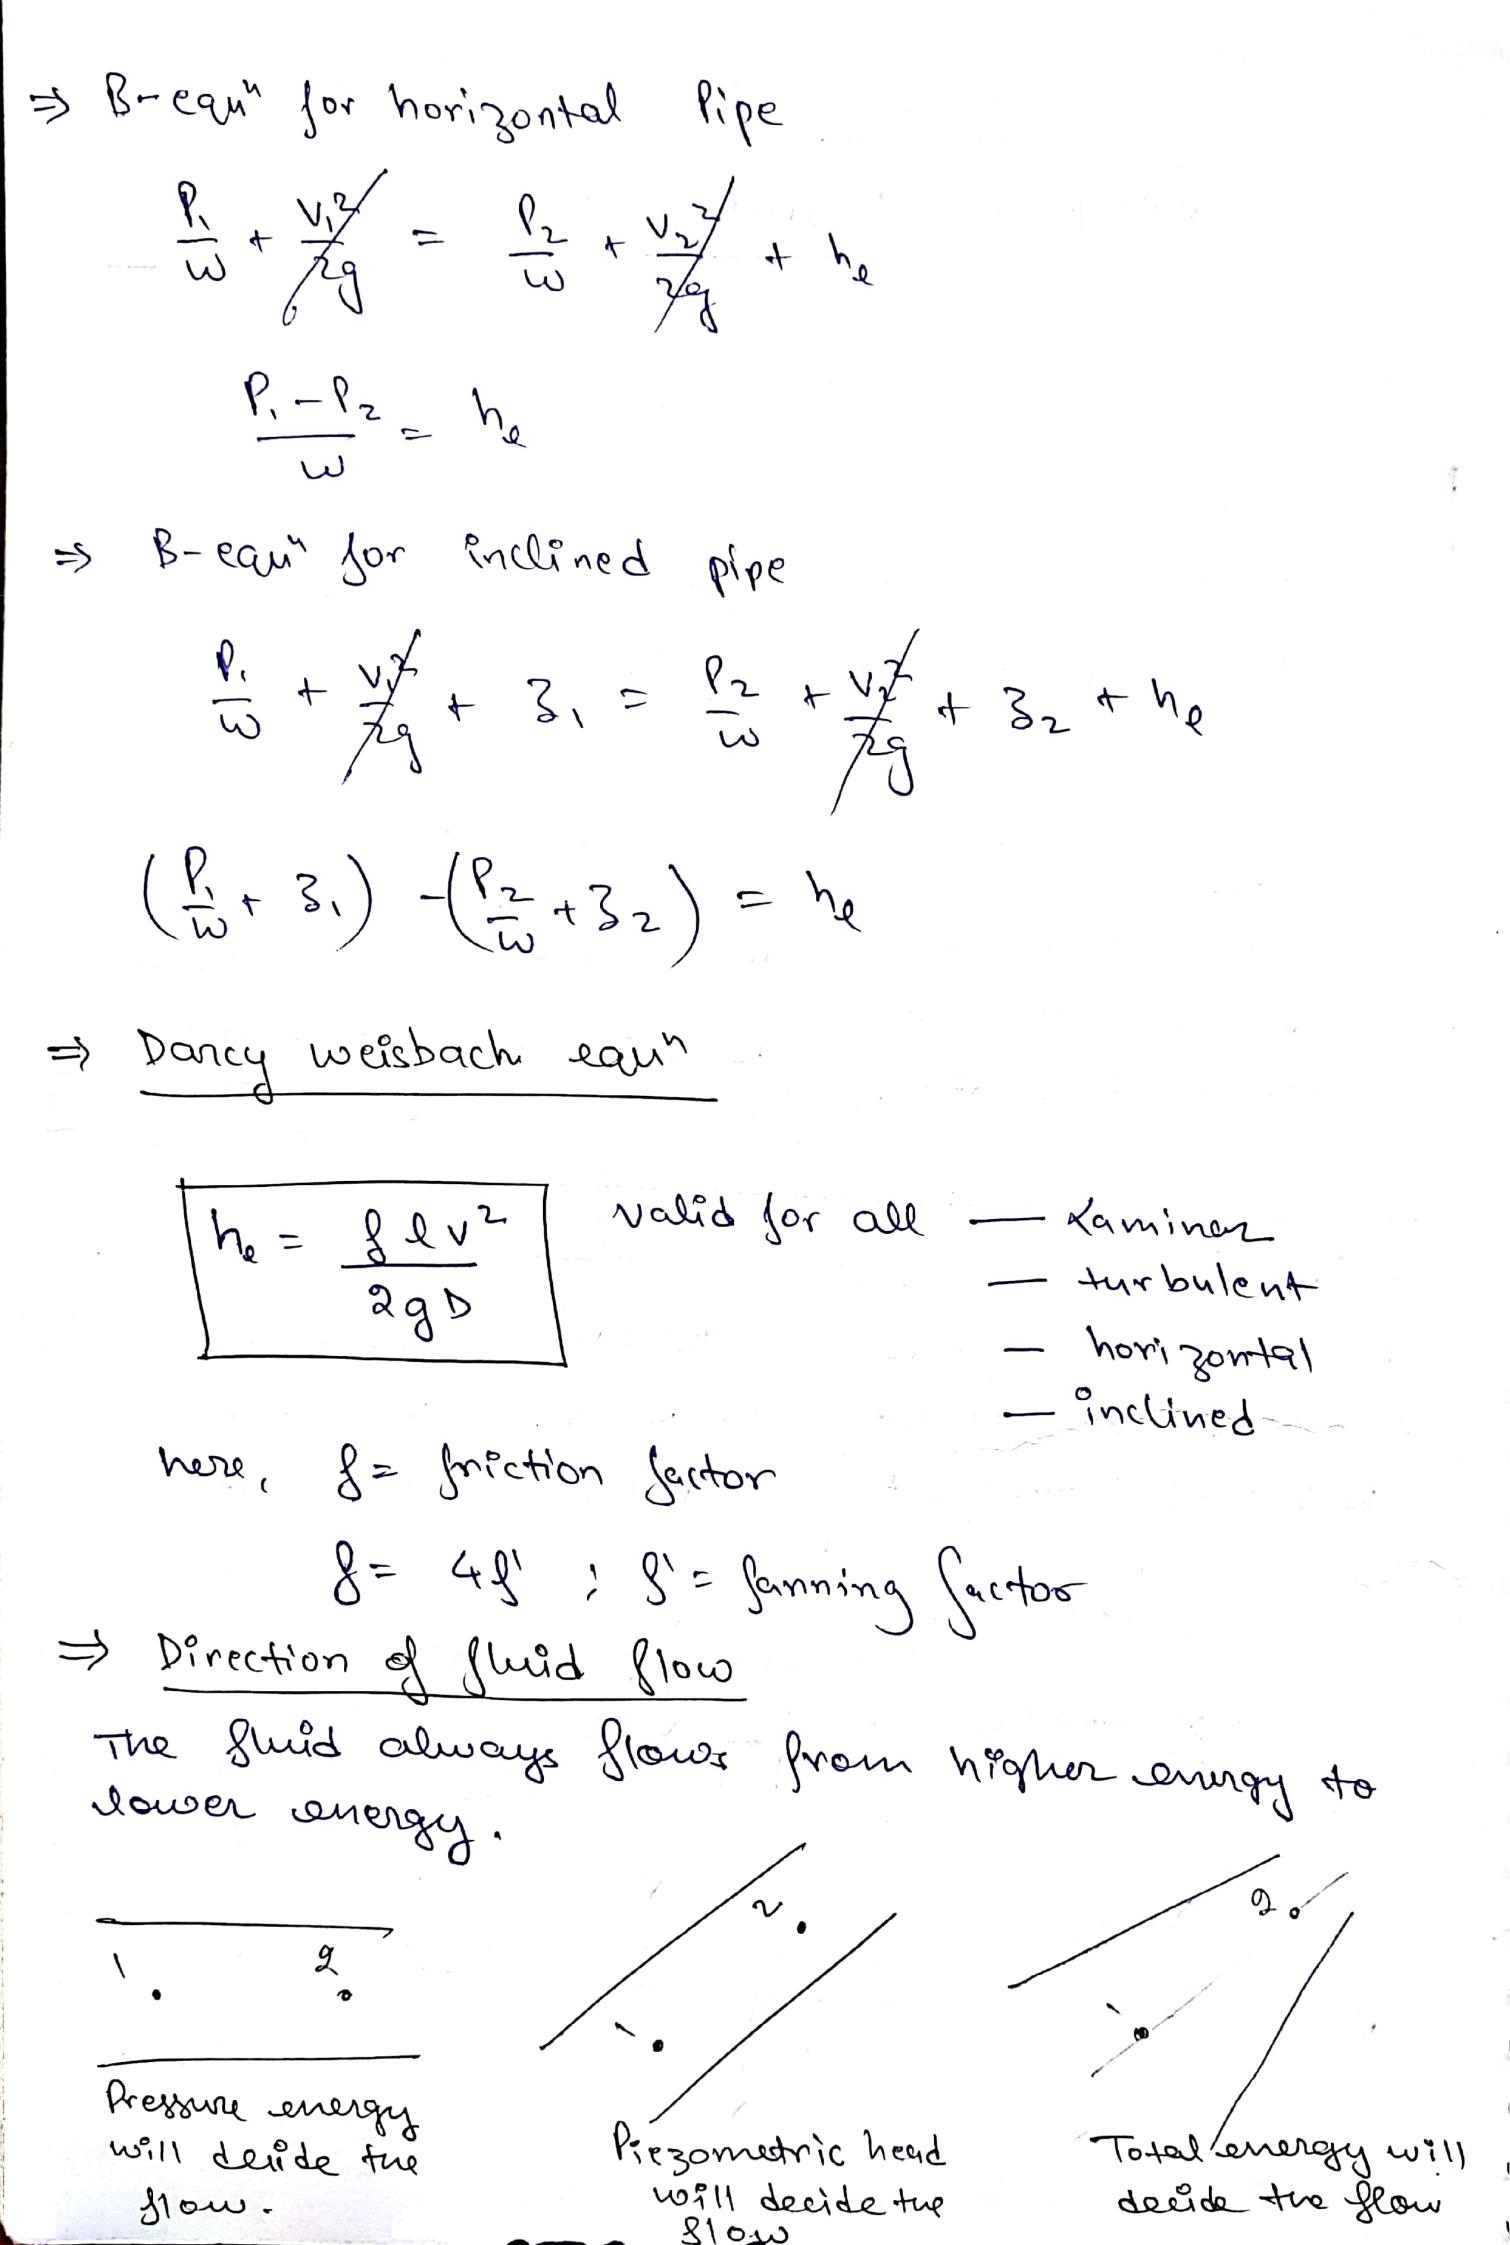 ⇒ B-equⁿ for horizontal Pipe
P₁/w + V₁²/2g = P₂/w + V₂²/2g + hₑ
(P₁ - P₂)/w = hₑ
⇒ B-equⁿ for inclined pipe
P₁/w + V₁²/2g + z₁ = P₂/w + V₂²/2g + z₂ + hₑ
(P₁/w + z₁) - (P₂/w + z₂) = hₑ
⇒ Darcy weisbach equⁿ
hₑ = f l v² / 2gD valid for all — Laminar
— turbulent
— horizontal
— inclined
here, f = friction factor
f = 4f' ; f' = fanning factor
⇒ Direction of fluid flow
The fluid always flows from higher energy to
lower energy.
1 2
1 2
1 2
Pressure energy
will decide the
flow.
Piezometric head
will decide the
flow
Total energy will
decide the flow